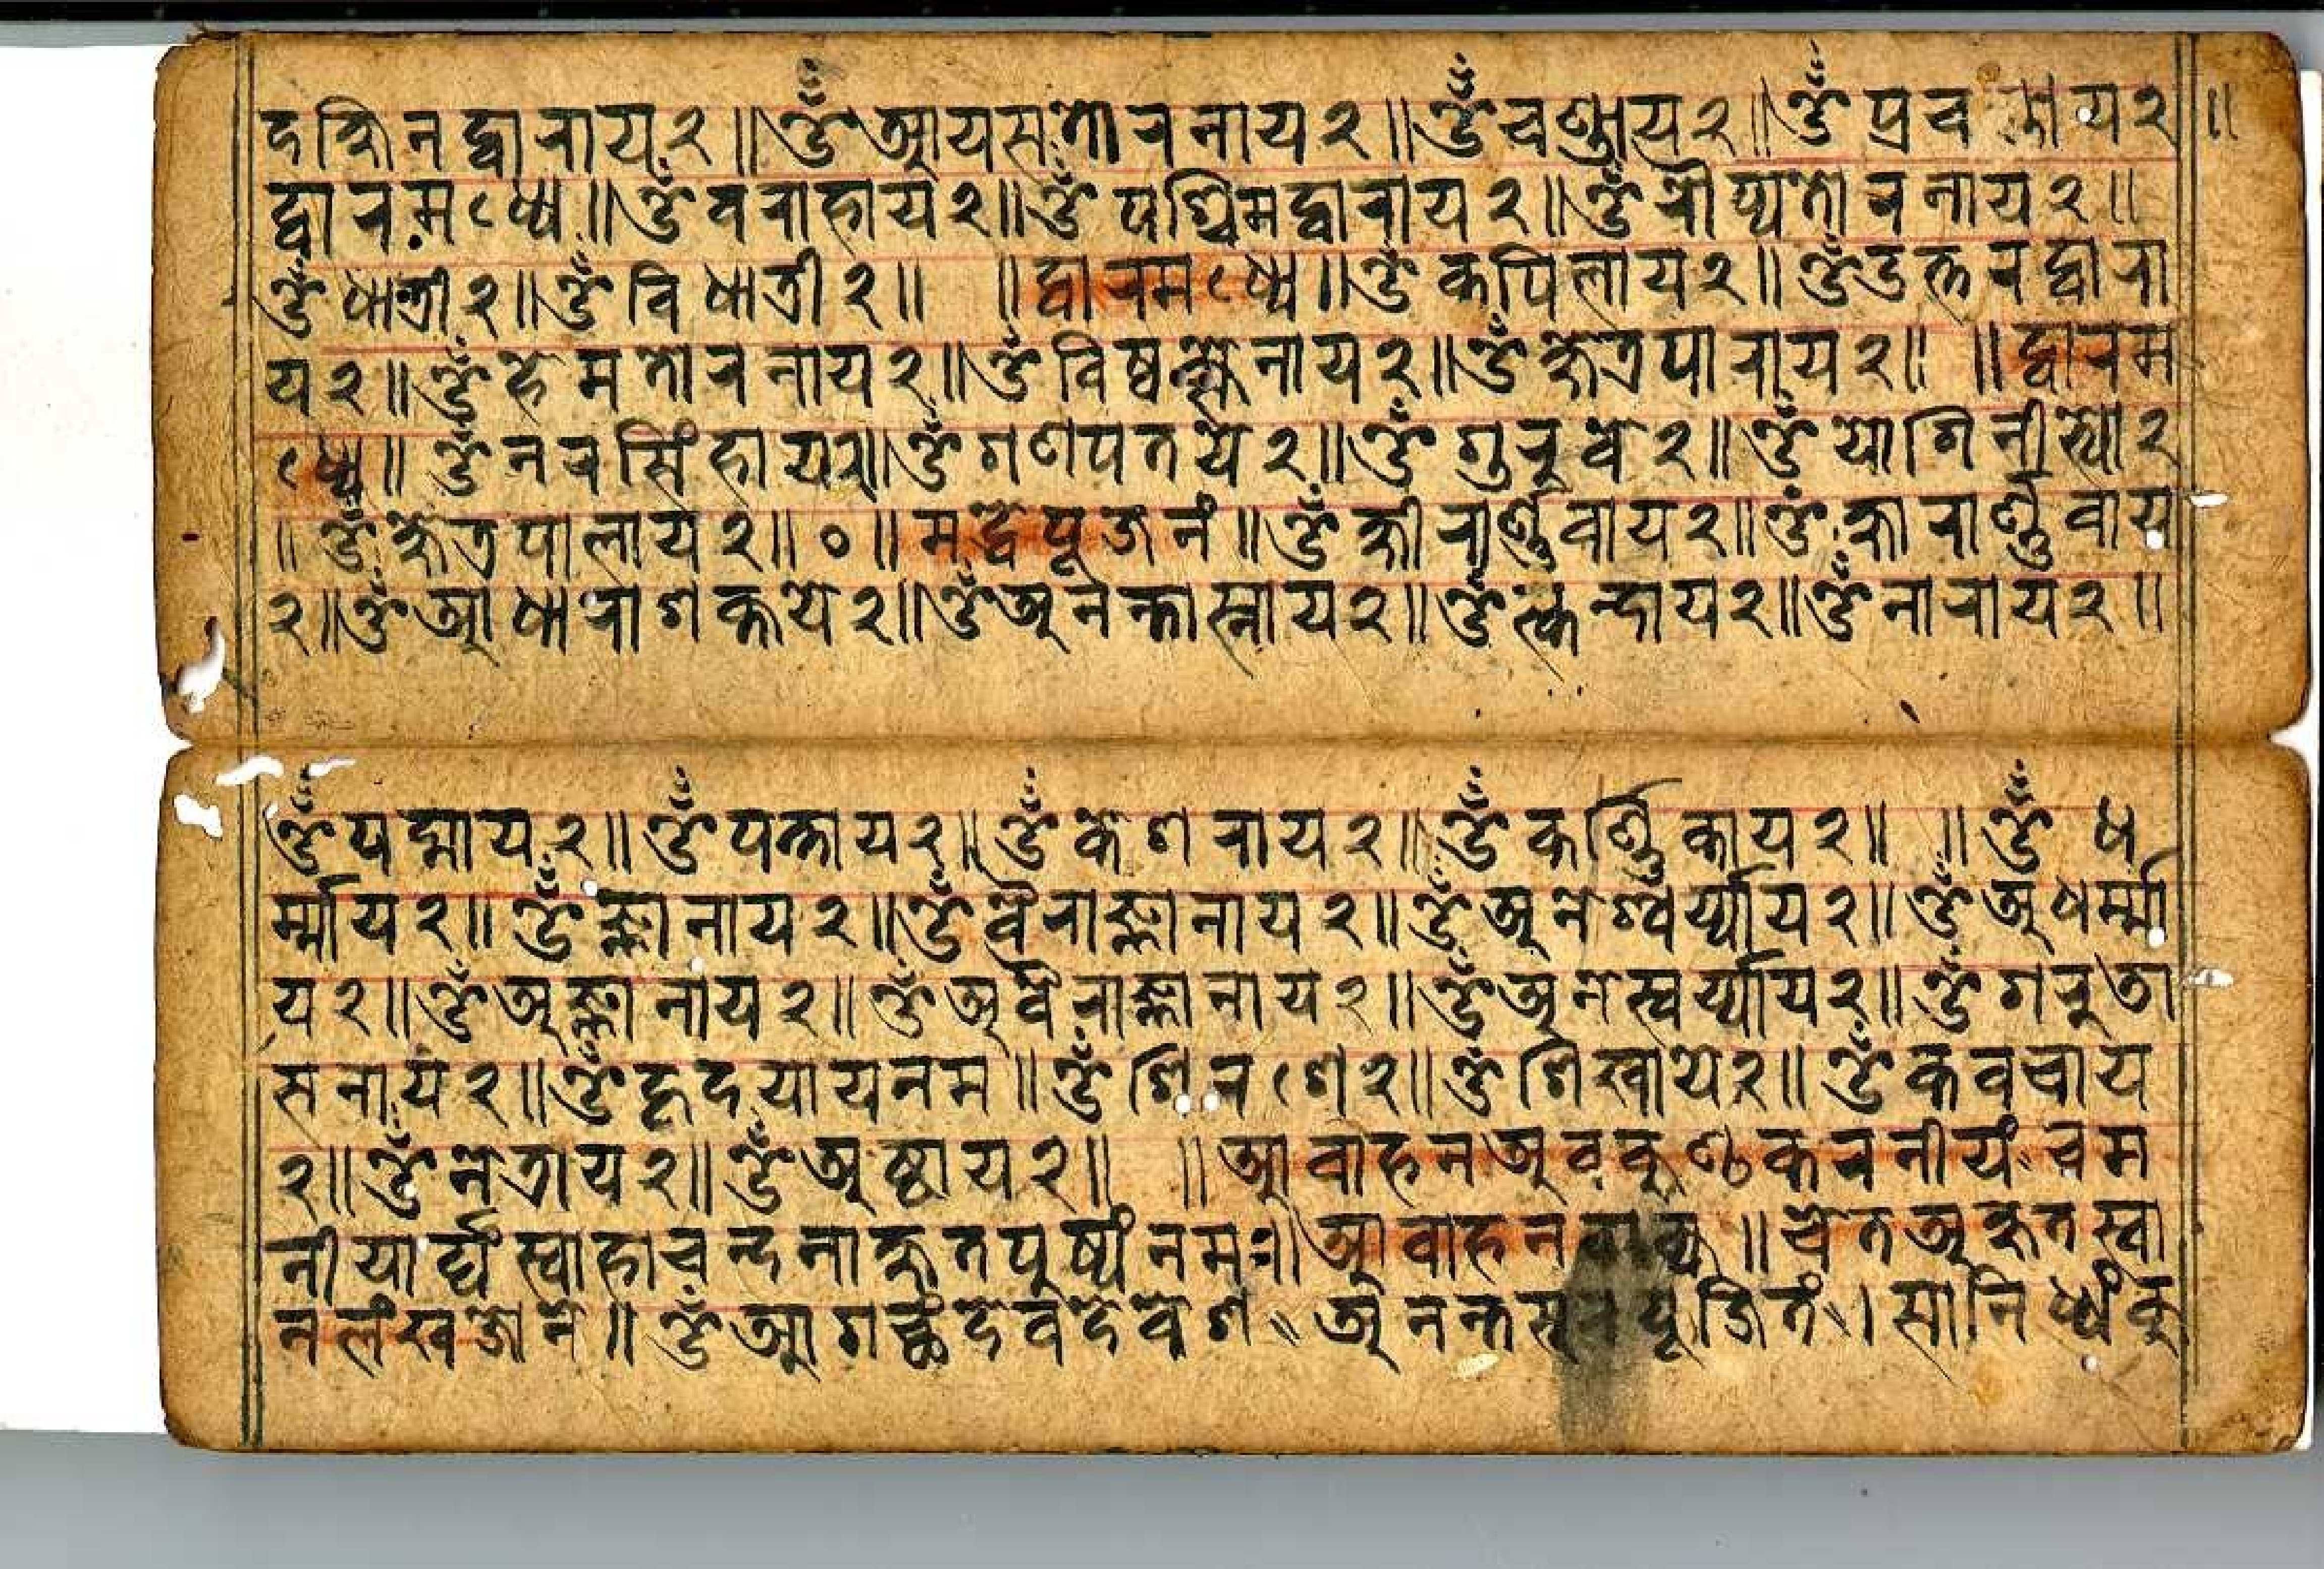 दक्षिनद्वाराय२॥ ॐ आयसतोरनाय२॥ ॐ चण्डाय२॥ ॐ प्रचण्डाय२॥
द्वारमध्ये॥ ॐ वराहाय२॥ ॐ पश्चिमद्वाराय२॥ ॐ रौप्यतोरनाय२॥
ॐ धात्री२॥ ॐ विधात्री२॥ ॥द्वारमध्ये॥ ॐ कपिलाय२॥ ॐ उत्तरद्वारा
य२॥ ॐ हेमतोरनाय२॥ ॐ विष्वक्सेनाय२॥ ॐ क्षेत्रपाराय२॥ ॥द्वारम
ध्ये॥ ॐ नरसिंहाय२॥ ॐ गणपतये२॥ ॐ गुरुवे२॥ ॐ योगिनीभ्यो२
॥ ॐ क्षेत्रपालाय२॥०॥ मद्धेपूजनं॥ ॐ क्षीरार्ण्णवाय२॥ ॐ क्षारार्ण्णवाय
२॥ ॐ आधाराशक्तये२॥ ॐ अनन्तास्नाय२॥ ॐ स्कन्दाय२॥ ॐ नाराय२॥
ॐ पद्माय२॥ ॐ पत्ताय२॥ ॐ केशराय२॥ ॐ कर्ण्णिकाय२॥ ॥ ॐ ध
र्म्माय२॥ ॐ ज्ञानाय२॥ ॐ वैराज्ञानाय२॥ ॐ अनेश्वर्य्याय२॥ ॐ अधर्म्मा
य२॥ ॐ अज्ञानाय२॥ ॐ अवैराज्ञानाय२॥ ॐ अनेस्वर्य्याय२॥ ॐ गरुडा
सनाय२॥ ॐ हृदयायनम॥ ॐ शिरशे२॥ ॐ शिखायै२॥ ॐ कवचाय
२॥ ॐ नेत्राय२॥ ॐ अष्ठाय२॥ ॥आवाहनअवकुण्ठकरनीयं चम
नीयार्घ्यं स्वाहा चन्दनाक्षतपुष्पं नमः॥ आवाहन ॥ अक्षतस्वा
नलंखजोने॥ ॐ आगच्छदेवदेवेश अनन्त पूजितं । सानिध्यं कु